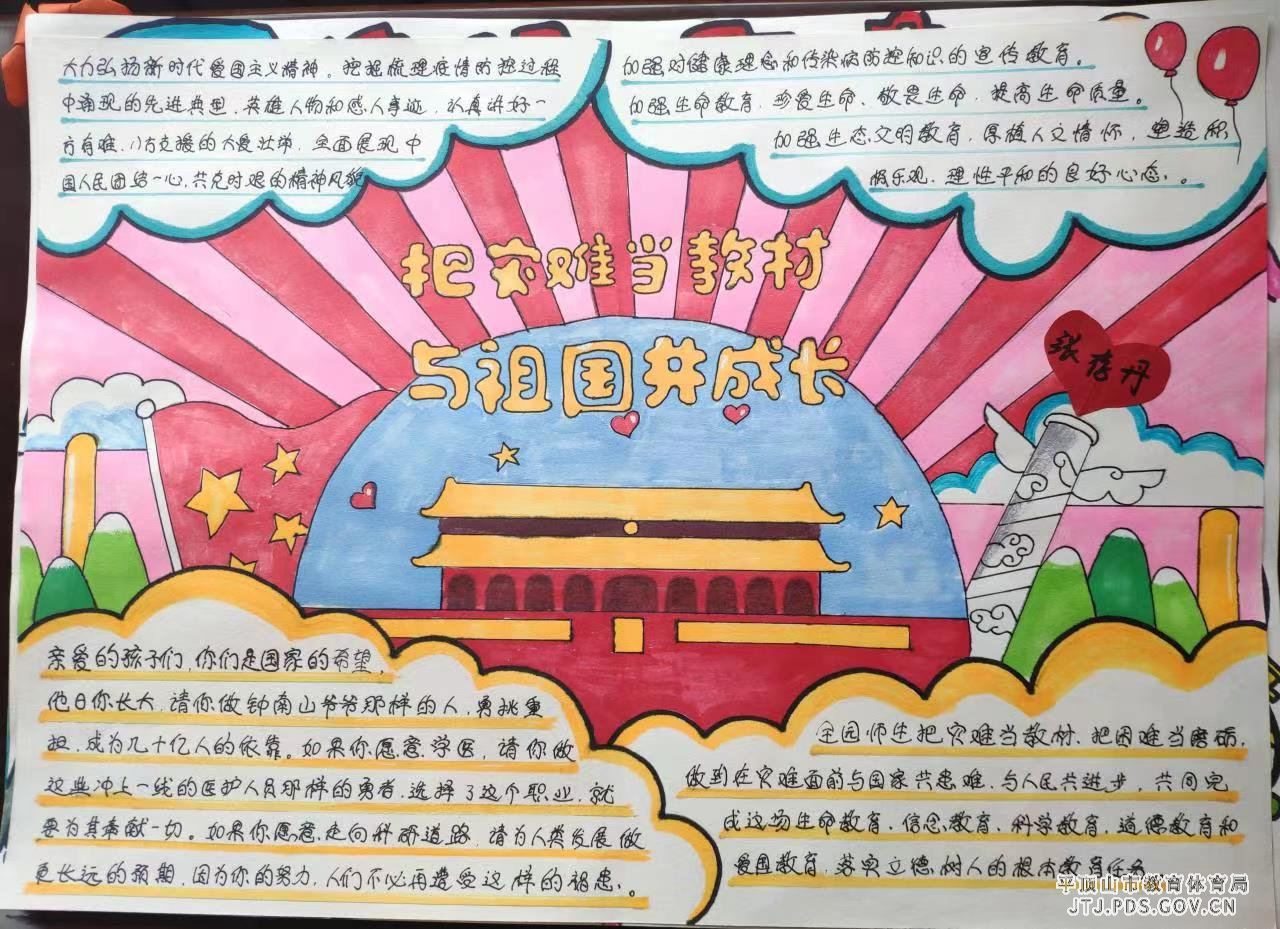 大力弘扬新时代爱国主义精神。挖掘梳理疫情防控过程
中涌现的先进典型，英雄人物和感人事迹，认真讲好一
方有难、八方支援的大爱壮举，全面展现中
国人民团结一心，共克时艰的精神风貌
加强对健康理念和传染病防控知识的宣传教育。
加强生命教育，珍爱生命、敬畏生命，提高生命质量。
加强生态文明教育，厚植人文情怀，塑造积
极乐观、理性平和的良好心态。
把灾难当教材
与祖国共成长
张存丹
亲爱的孩子们，你们是国家的希望，
他日你长大，请你做钟南山爷爷那样的人，勇挑重
担，成为几十亿人的依靠。如果你愿意学医，请你做
这些冲上一线的医护人员那样的勇者，选择了这个职业，就
要为其奉献一切。如果你愿意走向科研道路，请为人类发展做
更长远的预期，因为你的努力，人们不必再遭受这样的祸患。
全园师生把灾难当教材、把困难当磨砺，
做到在灾难面前与国家共患难、与人民共进步，共同完
成这场生命教育、信念教育、科学教育、道德教育和
爱国教育，落实立德树人的根本教育任务
平顶山市教育体育局
JTJ.PDS.GOV.CN